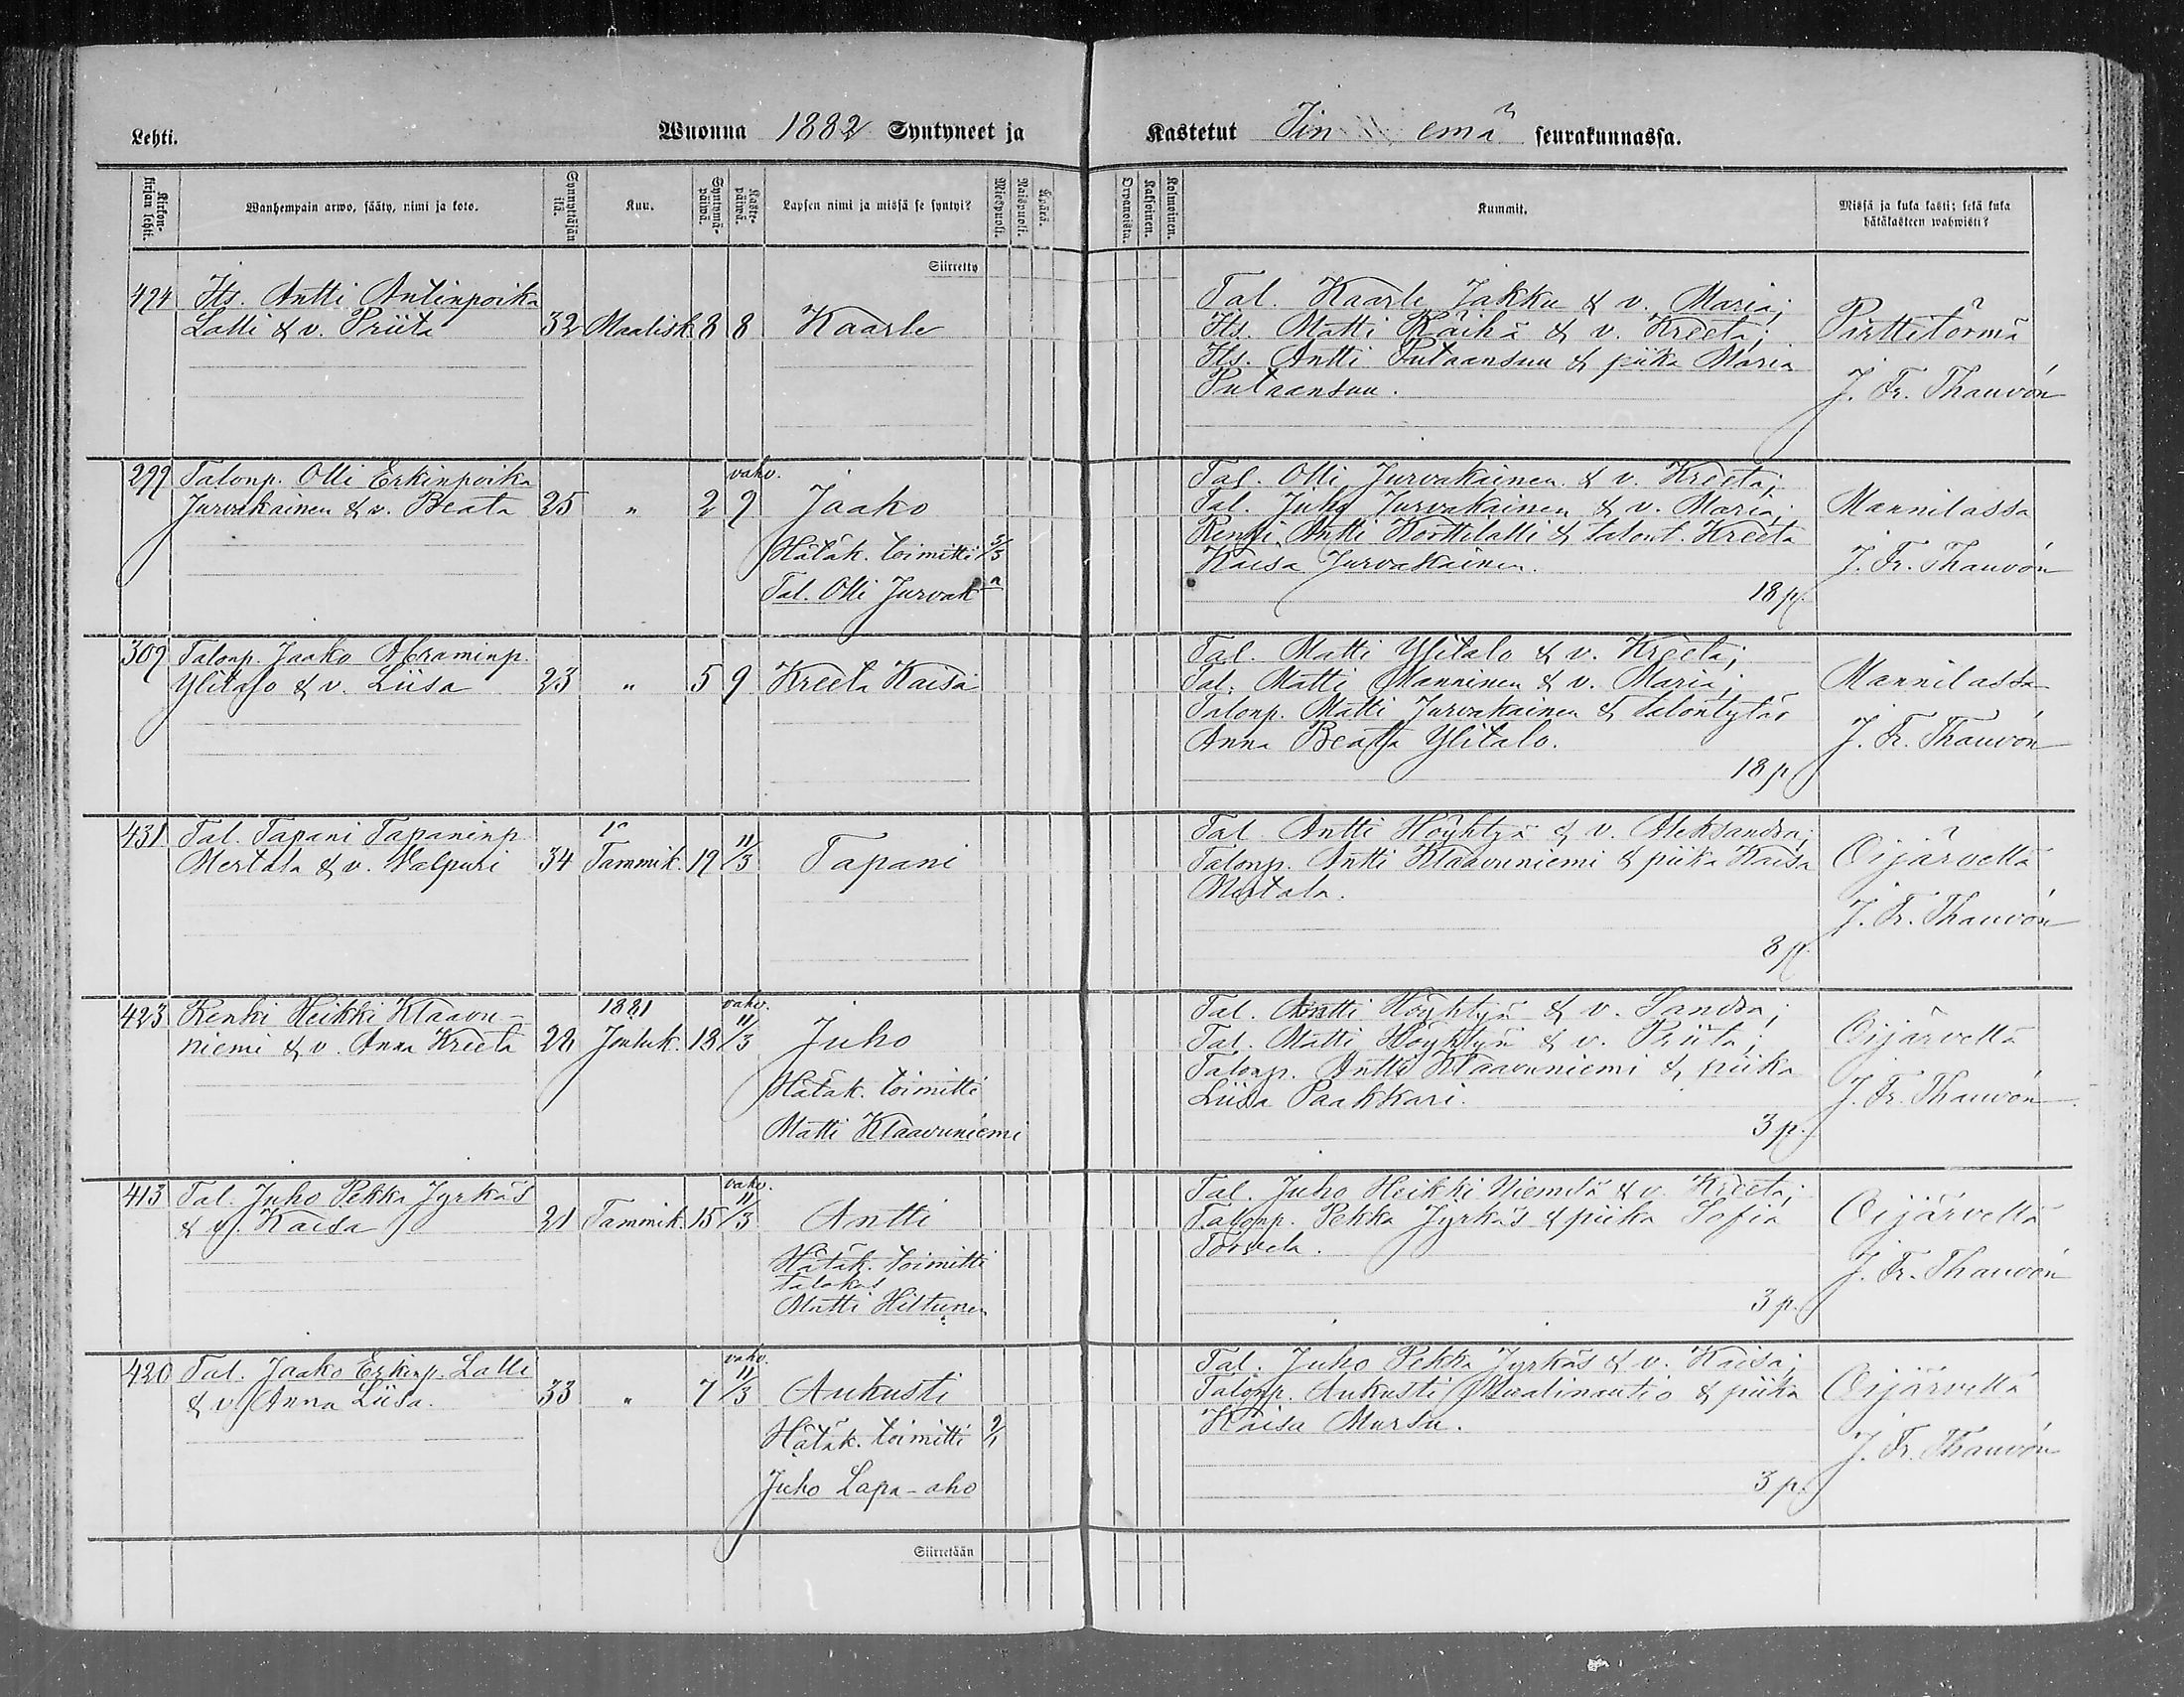 Lehti.
Wuonna 1882 Syntyneet ja
Kastetut Iin emä seurakunnassa.
Kirkon-kirjan lehti.
Wanhempain arwo, sääty, nimi ja koto.
Synnyttäjän ikä.
Kuu.
Syntymä-päivä.
Kaste-päivä.
Lapsen nimi ja missä se syntyi?
Miespuoli.
Naispuoli.
Äpärä.
Orpanoista.
Kaksoinen.
Kolmoinen.
Kummit.
Missä ja kuka kasti; sekä kuka
hätäkasteen wahwisti?
Siirretty
424 Its. Antti Antinpoika
Lalli & v. Priita 32 Maalisk. 8 8 Kaarle
Tal. Kaarle Jakku & v. Maria;
Its. Matti Räihä & v. Kreeta;
Its. Antti Putaansuu & piika Maria
Putaansuu.
Pirttitörmä
J. Fr. Thauvón
299 Talonp. Olli Erkinpoika
Jurvakainen & v. Beata 25 " 2 vahv. 9 Jaako
Hätäk. toimitti 3/3
Tal. Olli Jurvak
Tal. Olli Jurvakainen & v. Kreeta;
Tal. Juho Jurvakainen & v. Maria;
Renki Antti Korttilalli & talont. Kreeta
Kaisa Jurvakainen.
18 p.
Mannilassa
J. Fr. Thauvón
309 Talonp. Jaako Abraminp.
Ylitalo & v. Liisa 23 " 5 9 Kreeta Kaisa
Tal. Matti Ylitalo & v. Kreeta;
Tal. Matti Manninen & v. Maria;
Talonp. Matti Jurvakainen & talontytär
Anna Beata Ylitalo.
18 p
Mannilassa
J. Fr. Thauvón
431 Tal. Tapani Tapaninp.
Mertala & v. Valpuri 34 Tammik. 19 11/3 Tapani
Tal. Antti Höyhtyä & v. Aleksandra;
Talonp. Antti Klaavuniemi & piika Kaisa
Mertala.
8 p.
Oijärvellä
J. Fr. Thauvón
423 Renki Heikki Klaavu-
niemi & v. Anna Kreeta 28 1881 Jouluk. 18 vahv. 11/3 Juho
Hätäk. toimitti
Matti Klaavuniemi
Tal. Antti Höyhtyä & v. Sandra;
Tal. Matti Höyhtyä & v. Priita;
Talonp. Antti Klaavuniemi & piika
Liisa Paakkari.
3 p.
Oijärvellä
J. Fr. Thauvón
413 Tal. Juho Pekka Jyrkäs
& v. Kaisa 21 Tammik. 15 vahv. 11/3 Antti
Hätäk. toimitti
talokas
Matti Hiltunen
Tal. Juho Heikki Niemelä & v. Kreeta;
Talonp. Pekka Jyrkäs & piika Sofia
Torvela.
3 p.
Oijärvellä
J. Fr. Thauvón
420 Tal. Jaako Erkinp. Lalli
& v. Anna Liisa. 33 " 7 vahv. 11/3 Aukusti
Hätäk. toimitti 9/1
Juho Lapa-aho
Tal. Juho Pekka Jyrkäs & v. Kaisa;
Talonp. Aukusti Maalinautio & piika
Kaisa Mursu.
3 p.
Oijärvellä
J. Fr. Thauvón
Siirretään